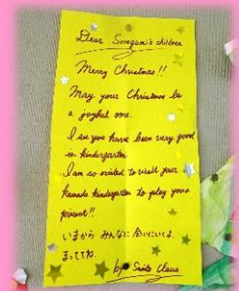 Dear Soragumi's children
Merry Christmas!!
May your Christmas be
a joyful one.
I see you have been very good
in kindergarten
I am so excited to visit your
kindergarten to play your
present!!
いまから みんなに会いにいくよ
まっててね。
by Santa Claus